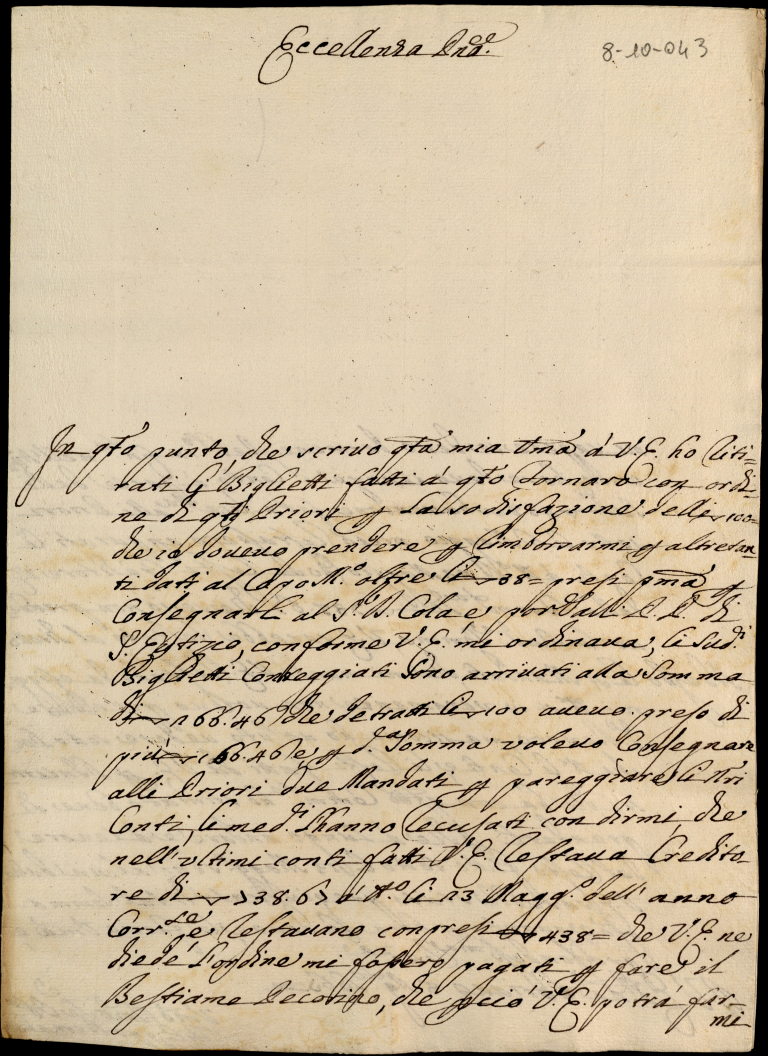 Eccellenza Pne.
8-10-043
In qsto punto, che scrivo qsta mia Uma à V.E. ho riti=
rati li Biglietti fatti à qsto Fornaro con ordi=
ne di qsti Priori p la sodisfazione delle 100=
che io dovevo prendere p rimborsarmi p altretan=
ti dati al Capo M.o oltre li 38= presi pma p
Consegnarli al S.r N. Cola, e portarli P. P. di
S. Eutizio, conforme V.E. mi ordinava; li sud.i
Biglietti Conteggiati sono arrivati alla Somma
di 166.46 che detratti li 100 avevo preso di
più 66.46 e p d.a Somma volevo Consegnare
alli Priori due Mandati p pareggiare li nri
Conti, li med.i l'hanno recusati con dirmi, che
nell'ultimi conti fatti V.E. restava Credito=
re di 38.67 à tt.o li 23 Magg.o dell'anno
Corr.te, e restavano compresi 438= che V.E. ne
diede l'ordine mi fossero pagati p fare il
Bestiame Pecorino, che pciò V.E. potrà far=
mi